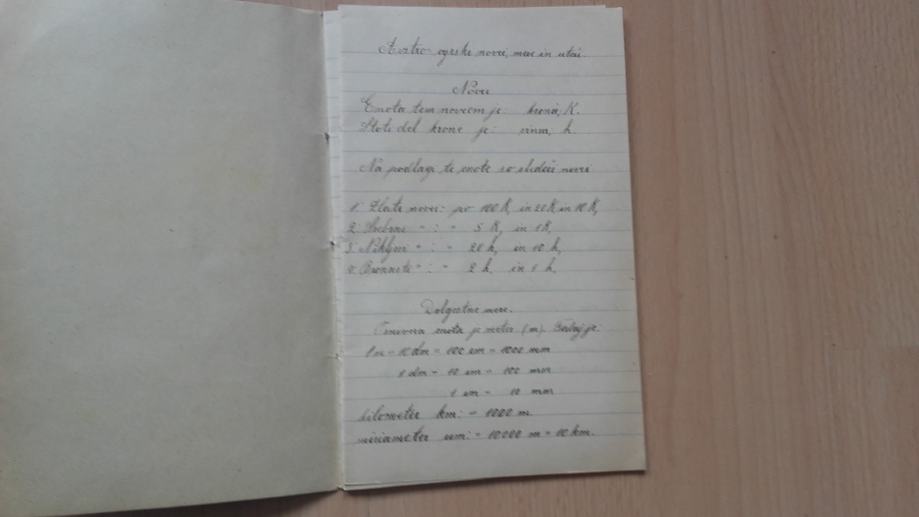 Avstro-ogrske novci, mere in uteži.
Novci
Enota tem novcem je: krona, K.
Stoti del krone je: vinar, h.
Na podlagi te enote so sledeči novci
1. Zlati novci: po 100 K, in 20 K in 10 K,
2. Srebrni " : " 5 K, in 1 K,
3. Nikljni " : " 20 h, in 10 h,
4. Bronasti " : " 2 h. in 1 h.
Dolgostne mere.
enota je meter (m).
1 m = 10 dm = 100 cm = 1000 mm
1 dm = 10 cm = 100 mm
1 cm = 10 mm
kilometer km: = 1000 m.
miriameter um: = 10000 m = 10 km.